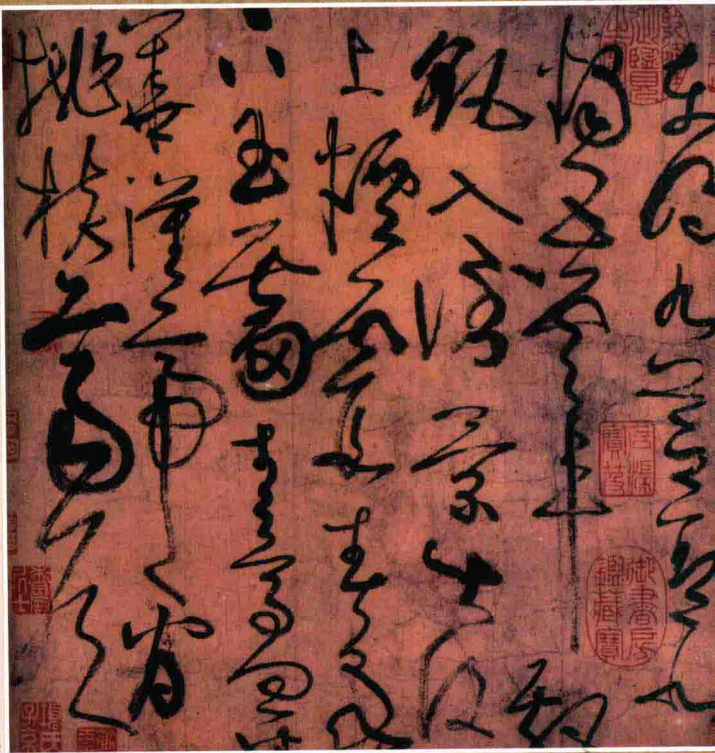 東明九芝蓋北
燭五雲車飄
颻入倒景出沒
上煙霞春泉
下玉霤青鳥向金
華漢帝看
桃核齊侯問
石渠寶笈
御書房鑑藏寶